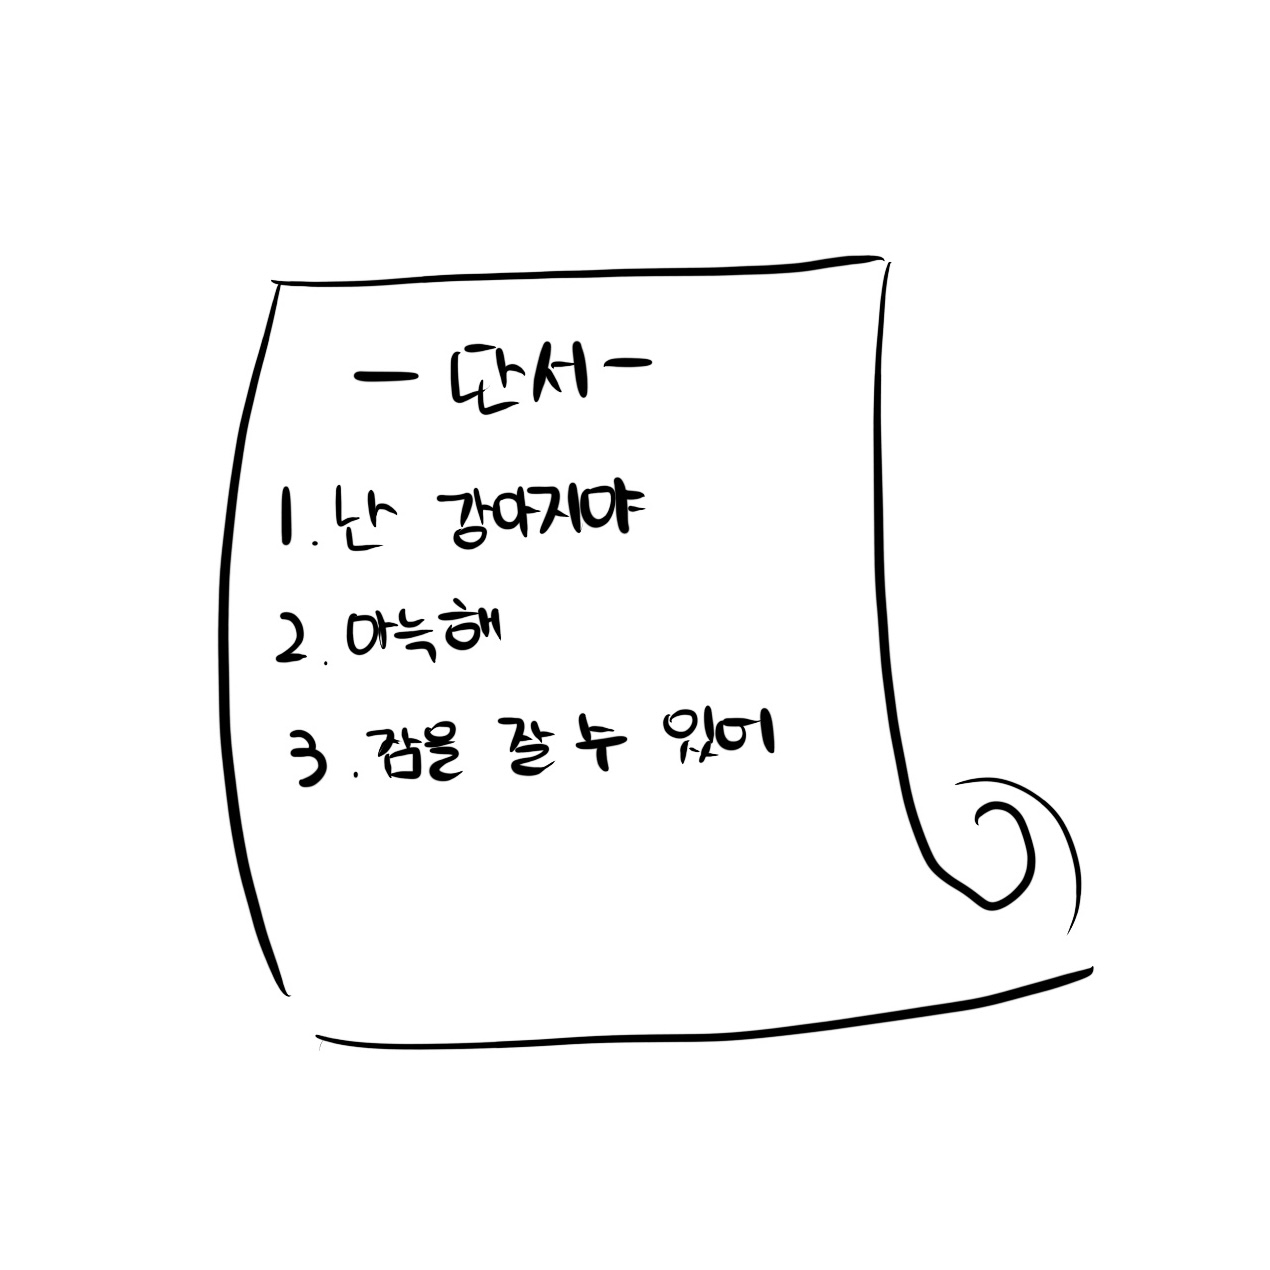 - 단서 -
1. 난 강아지야
2. 아늑해
3. 잠을 잘 수 있어